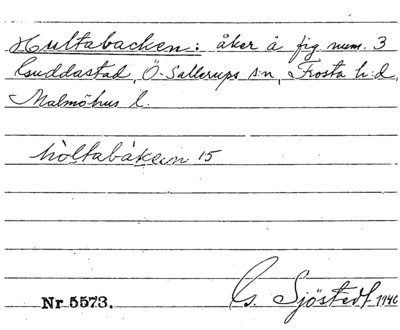 Hultabacken: åker å fig num. 3
Guddastad, Ö. Sallerups s:n, Frosta h:d,
Malmöhus l.
hòltabák​en 15
Nr 5573.
G. Sjöstedt 1940